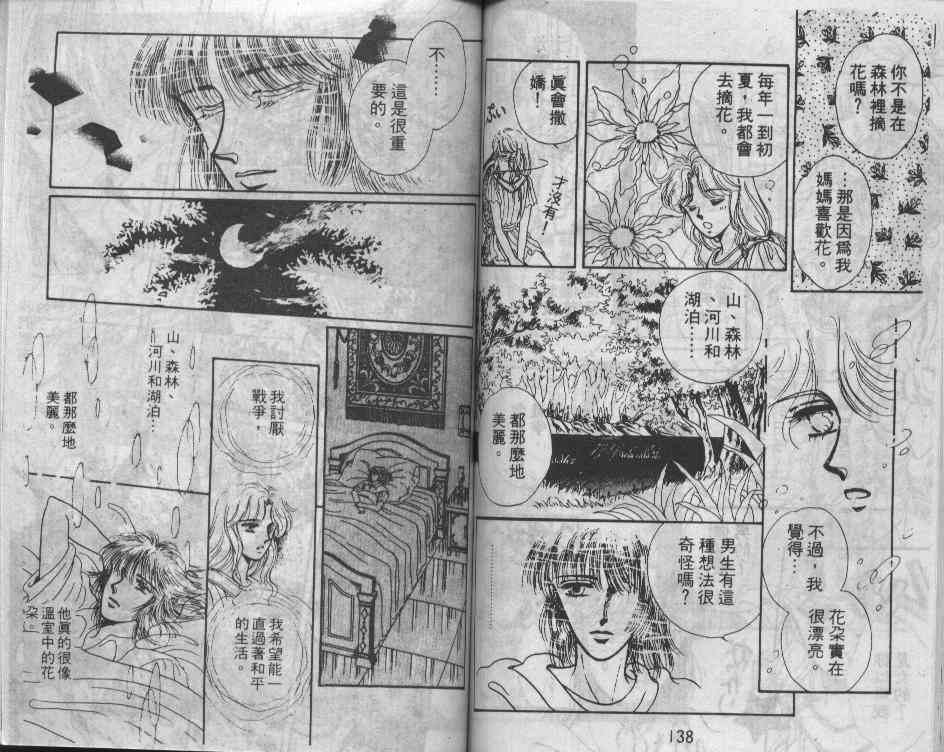 你不是在
森林裡摘
花嗎？
…那是因爲我
媽媽喜歡花。
每年一到初
夏，我都會
去摘花。
眞會撒
嬌！
ぷい
才沒有！
不過，我
覺得…
花朶實在
很漂亮。
山、森林
、河川和
湖泊……
都那麼地
美麗。
男生有這
種想法很
奇怪嗎？
138
不……
這是很重
要的。
我討厭
戰爭，
我希望能一
直過著和平
的生活。
山、森林、
河川和湖泊…
都那麼地
美麗。
他眞的很像
溫室中的花
朶。